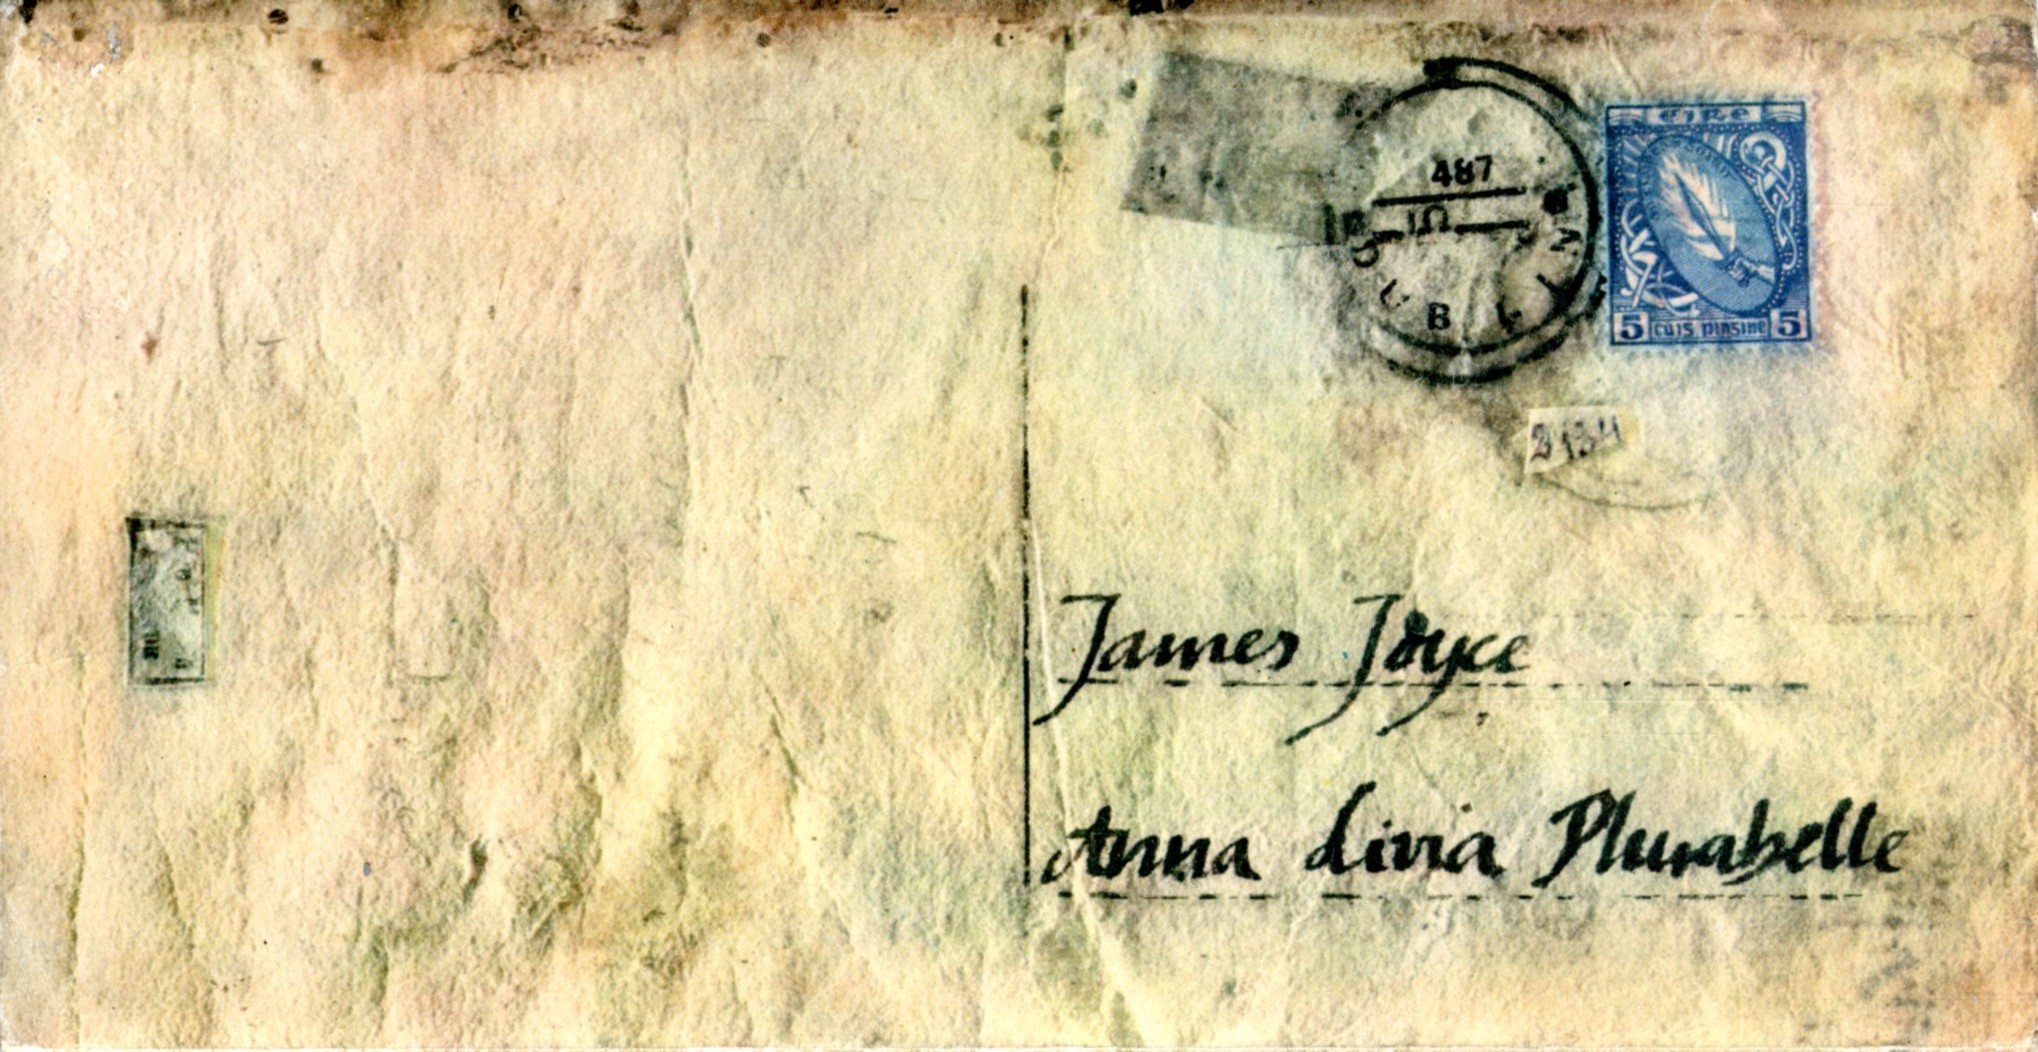 éire
487
DUBLIN
5 cúis pingine 5
2134
James Joyce
Anna Livia Plurabelle